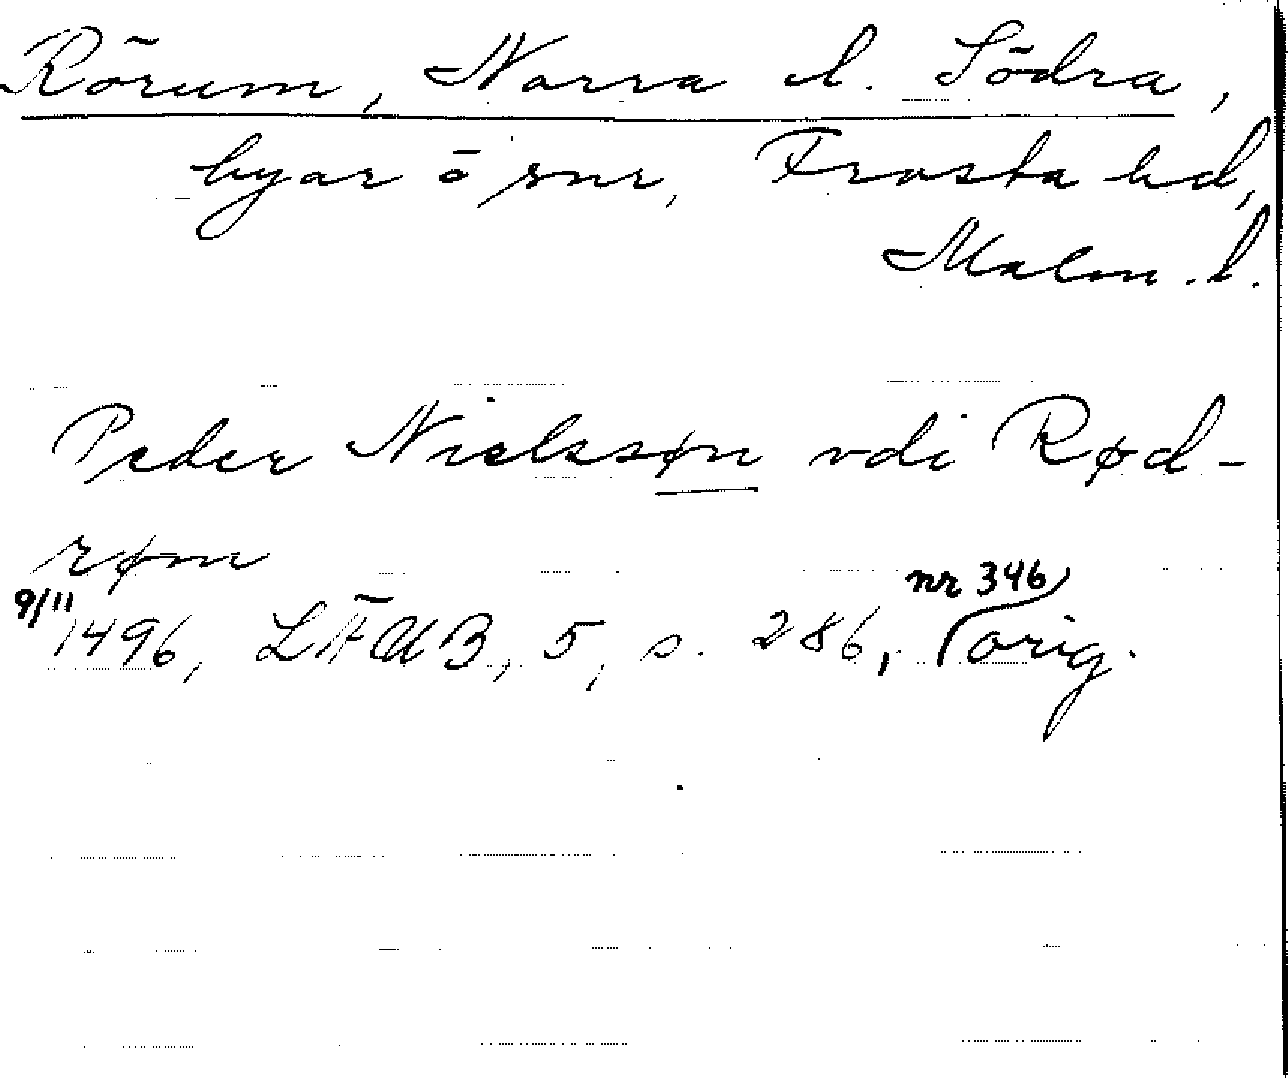 Rörum, Norra l. Södra,
byar ö snr, Frosta hd,
Malm. l.
Peder Nielssøn vdi Rød-
røm
9/11 1496, LÄUB, 5, s. 286, nr 346 orig.